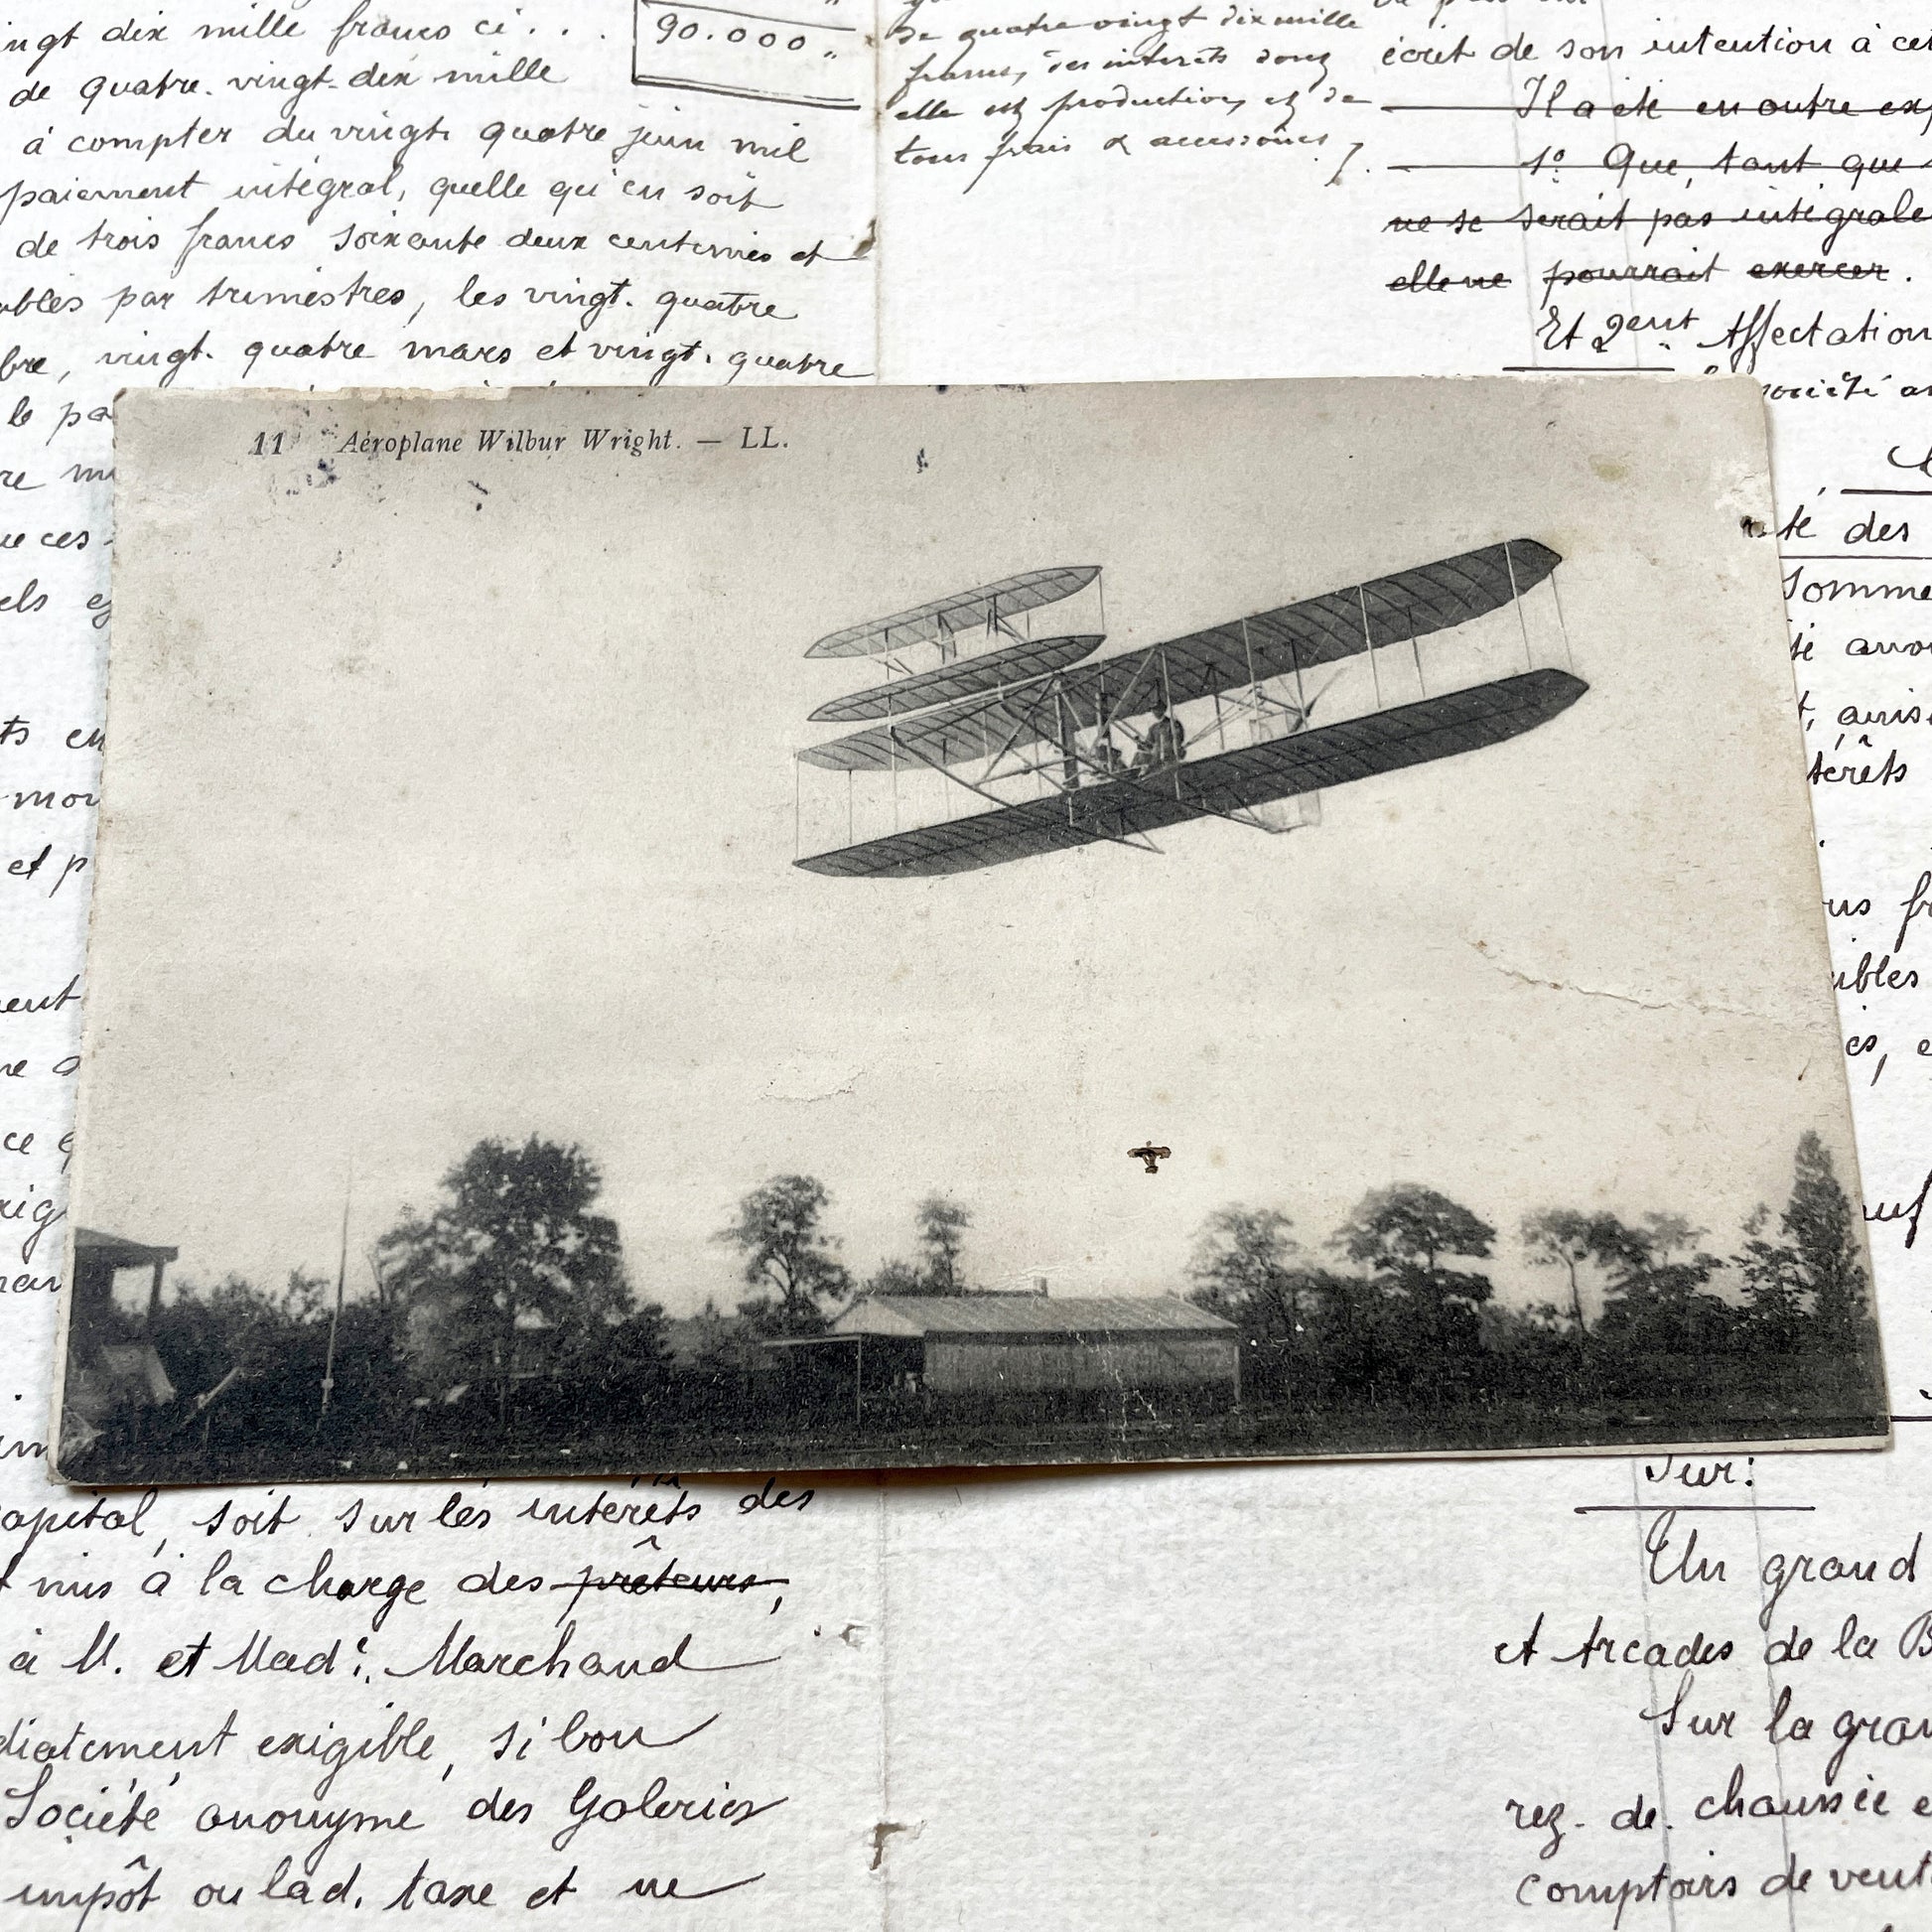 ingt dix mille francs ci . . .
90.000 "
de quatre-vingt-dix mille
à compter du vingt-quatre juin mil
paiement intégral, quelle qu'en soit
de trois francs soixante deux centimes et
par trimestres, les vingt-quatre
bre, vingt-quatre mars et vingt-quatre
le pa
re
ue ces
els
ts en
et p
ent
ce
de quatre vingt dix mille
francs, des intérêts dont
elle est production, et de
tous frais & accessoires
écrit de son intention à cet
Il a été en outre exp
1º Que, tant que
ne se serait pas intégrale
elle ne pourrait exercer.
Et 2ent Affectation
société an
té des
Somme
té avo
térêts
us fr
ibles
es, e
auf
11 Aéroplane Wilbur Wright. — LL.
capital, soit sur les intérêts des
mis à la charge des prêteurs,
à M. et Made. Marchand
diatement exigible, si bon
Société anonyme des Galeries
impôt ou lad. taxe et ne
Sur:
Un grand
et Arcades de la B
Sur la gran
rez-de-chaussée e
comptoirs de vent